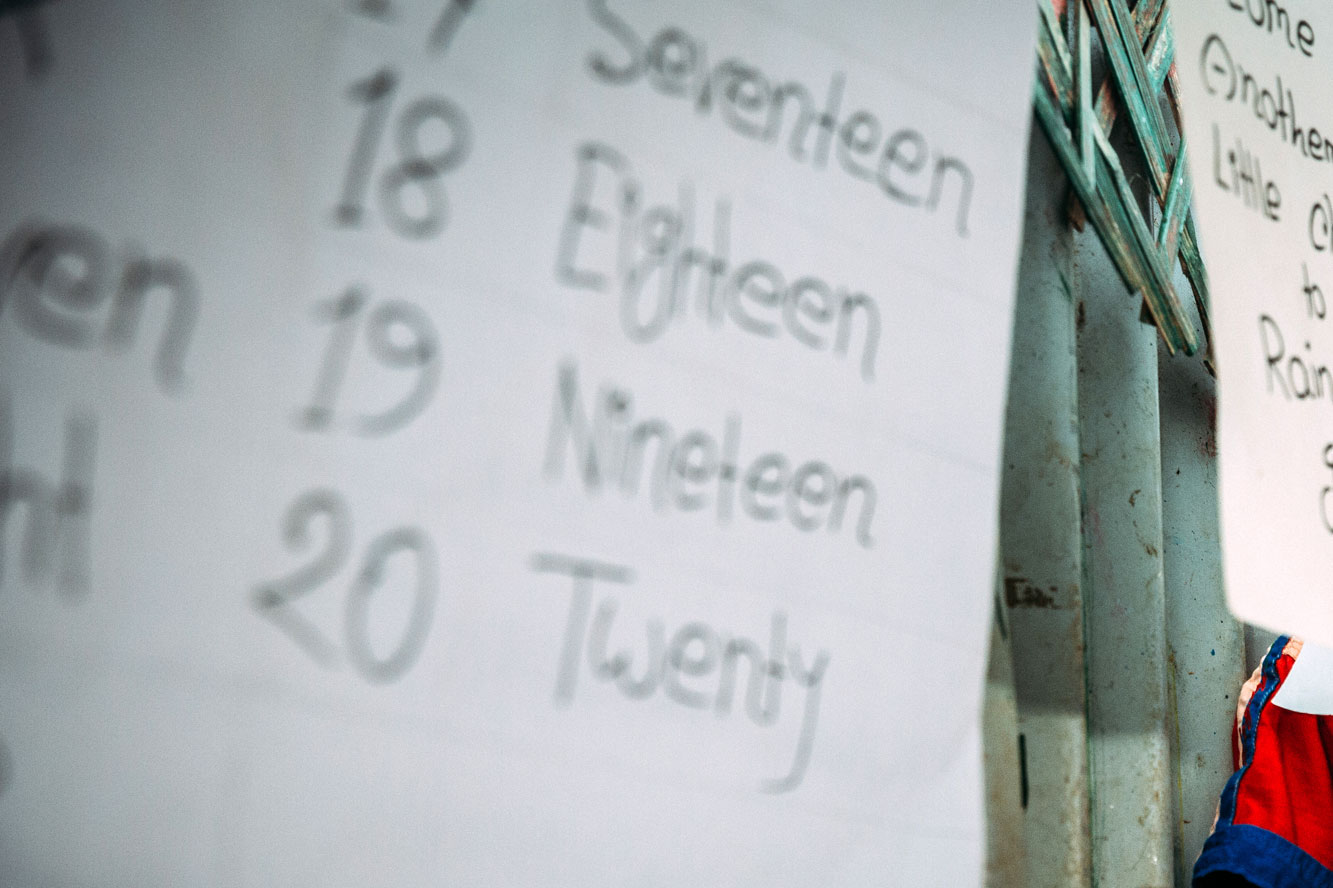 17 Seventeen
18 Eighteen
19 Nineteen
20 Twenty
Come
Another
Little
to
Rain